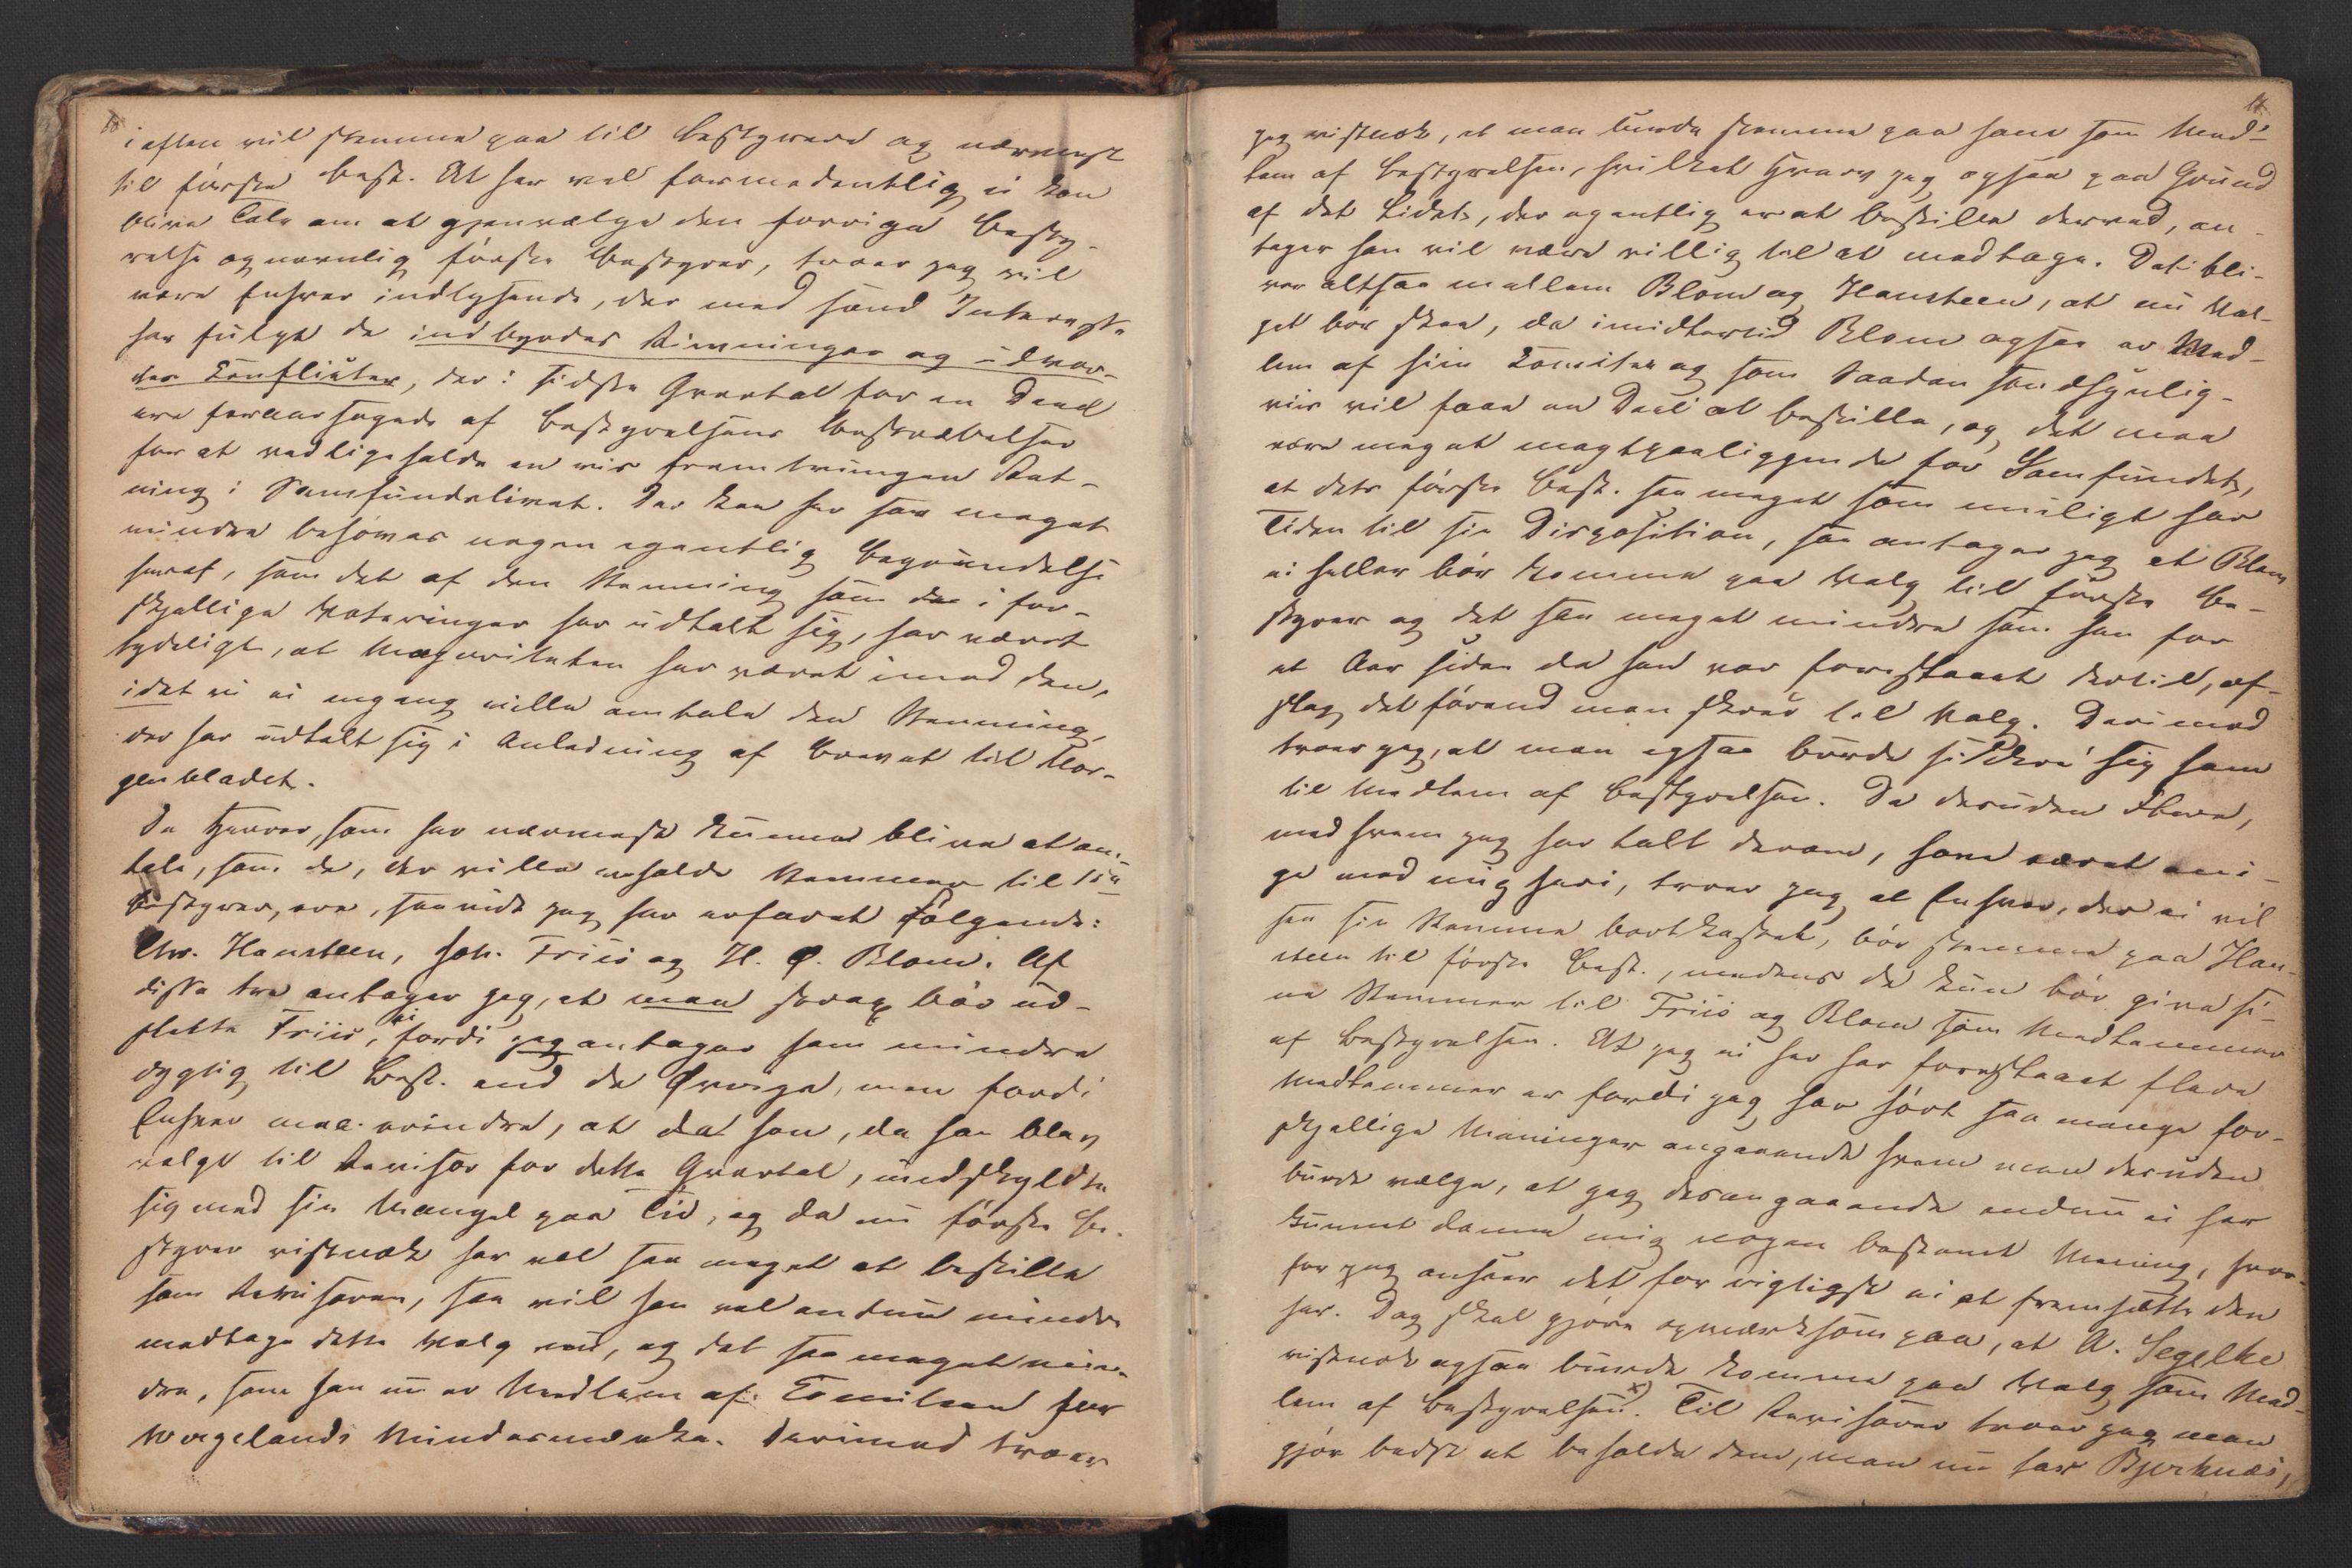 10
i aften vil stemme paa til Bestyrere og nærmest
til første Best. At her vel formodentlig ei kan
blive Tale om at gjenvælge den forrige Besty-
relse og navnlig første Bestyrer, troer jeg vil
være Enhver indlysende, der med sand Interesse
har fulgt de indbyrdes Rivninger og udvor-
tes Conflicter, der i sidste Qvartal for en Deel
ere foraarsagede af Bestyrelsens Bestræbelser
for at vedligeholde en vis fremtvungen Ret-
ning i Samfundslivet. Der kan her saa meget
mindre behøves nogen egentlig Begrundelse
heraf, som det af den Stemning som der i for-
skjellige Voteringer har udtalt sig, har været
tydeligt, at Majoriteten har været imod den,
idet vi ei engang ville omtale den Stemning,
der har udtalt sig i Anledning af Brevet til Mor-
genbladet.
De Herrer, som her nærmest kunne blive at om-
tale, som de, der ville erholde Stemmer til 1ste
Bestyrer, ere, saavidt jeg har erfaret følgende:
Chr. Hansteen, Joh. Friis og H. Ø. Blom. Af
disse tre antager jeg, at man strax bør ud-
slette Friis, ei fordi jeg antager ham mindre
dygtig til Best. end de Øvrige, men fordi
Enhver maa erindre, at da han, da han blev
valgt til Revisor for dette Qvartal, undskyldte
sig med sin Mangel paa Tid, og da nu første Be-
styrer vistnok har vel saa meget at bestille
som Revisoren, saa vil han vel endnu mindre
modtage dette Valg nu, og det saa meget min-
dre, som han nu er Medlem af Comiteen for
Wergelands Mindesmærke. Derimod troer
11
jeg vistnok, at man burde stemme paa ham som Med-
lem af Bestyrelsen, hvilket Hverv jeg ogsaa paa Grund
af det Lidet, der egentlig er at bestille derved, an-
tager han vil være villig til at modtage. Det bli-
ver altsaa mellem Blom og Hansteen, at nu Val-
get bør skee, da imidlertid Blom ogsaa er Med-
lem af hiin Comitee og som saadan sandsynlig-
viis vil faae en Deel at bestille, og det maa
være meget magtpaaliggende for Samfundet,
at dets første Best. saa meget som muligt har
Tiden til sin Disposition, saa antager jeg at Blom
ei heller bør komme paa Valg til første Be-
styrer og det saa meget mindre som han for
et Aar siden da han var foreslaaet dertil, af-
slog det førend man skred til Valg. Derimod
troer jeg, at man ogsaa burde sikkre sig ham
til Medlem af Bestyrelsen. Da desuden Flere,
med hvem jeg har talt derom, have været eni-
ge med mig heri, troer jeg at Enhver, der ei vil
see sin Stemme bortkastet, bør stemme paa Han-
steen til første Best., medens de kun bør give si-
ne Stemmer til Friis og Blom som Medlemmer
af Bestyrelsen. At jeg ei her har foreslaaet flere
Medlemmer er fordi jeg har hørt saa mange for-
skjellige Meninger angaaende hvem man desuden
burde vælge, at jeg desangaaende endnu ei har
kunnet danne mig nogen bestemt Mening, hvor-
for jeg anseer det for rigtigst ei at fremsætte den
her. Dog skal gjøre opmærksom paa, at A. Segelke
vistnok ogsaa burde komme paa Valg som Med-
lem af Bestyrelsen x). Til Revisorer troer jeg man
gjør bedst at beholde dem, man nu har Bjerknæs,